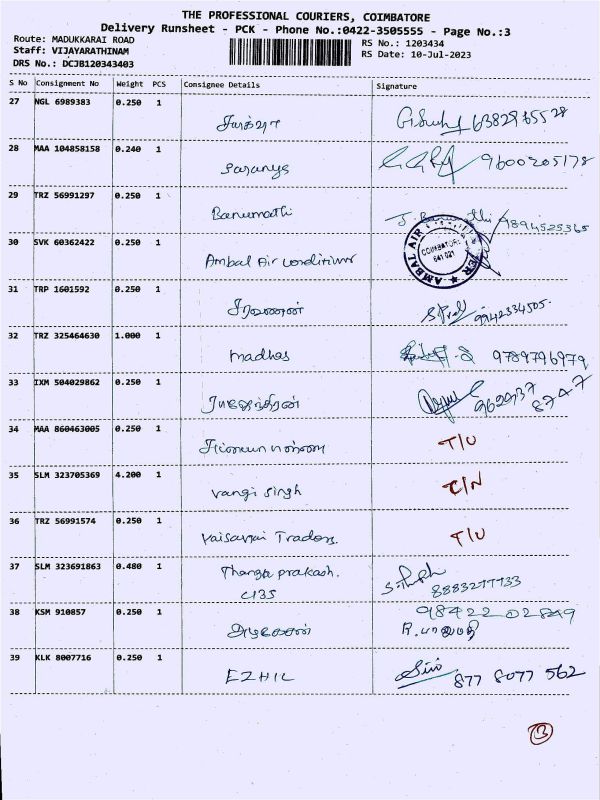 THE PROFESSIONAL COURIERS, COIMBATORE
Delivery Runsheet - PCK - Phone No.:0422-3505555 - Page No.:3
Route: MADUKKARAI ROAD
Staff: VIJAYARATHINAM
DRS No.: DCJB120343403
RS No.: 1203434
RS Date: 10-Jul-2023
S No Consignment No Weight PCS Consignee Details Signature
27 NGL 6989383 0.250 1
6382965528
28 MAA 104858158 0.240 1
Saranya 9600205178
29 TRZ 56991297 0.250 1
Banumathi 9894525365
30 SVK 60362422 0.250 1
Ambal Air conditioner
COIMBATORE
641 021
AMBAL AIR
31 TRP 1601592 0.250 1
சரவணன் 9942334505.
32 TRZ 325464630 1.000 1
madhas 9789796979
33 IXM 504029862 0.250 1
ராஜேந்திரன் 962937 8747
34 MAA 860463005 0.250 1
T/U
35 SLM 323705369 4.200 1
vangi singh C/N
36 TRZ 56991574 0.250 1
Traders. T/U
37 SLM 323691863 0.480 1
Thanga prakash.
8883277133
38 KSM 910857 0.250 1
98422 02849
R.
39 KLK 8007716 0.250 1
EZHIL 877 8077 562
13